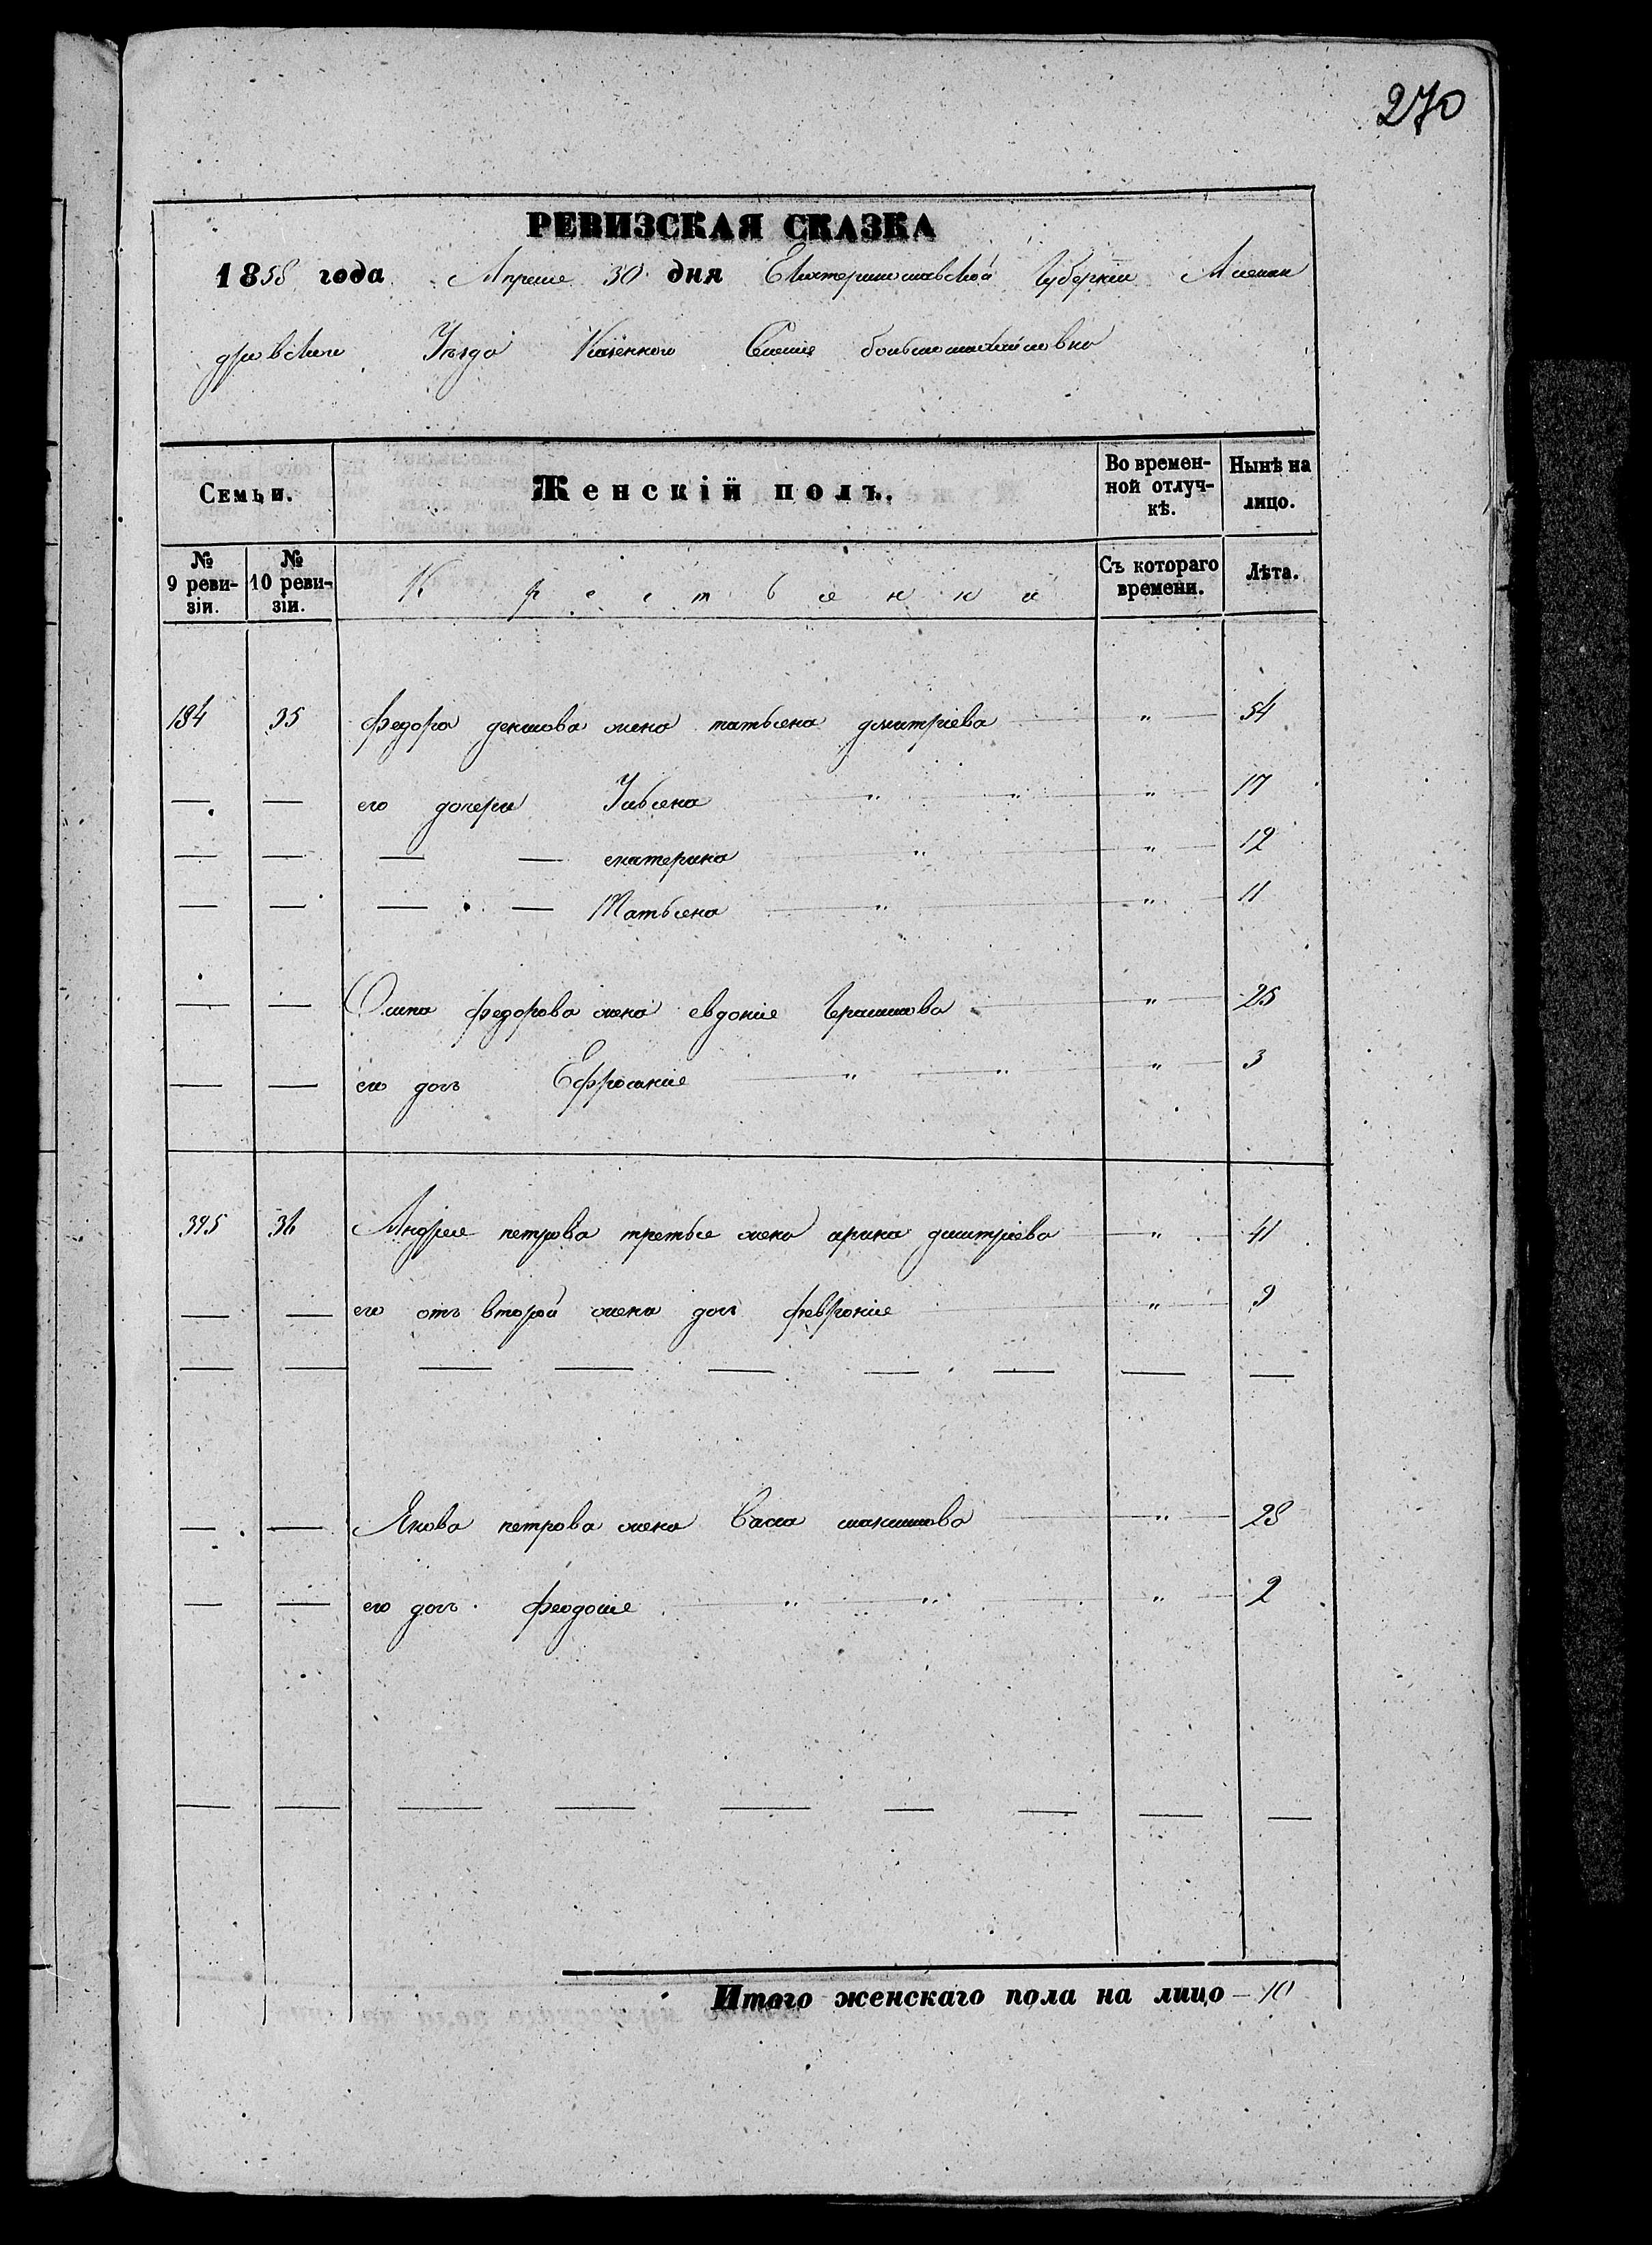 270
РЕВИЗСКАЯ СКАЗКА
1858 года Апреля 30 дня Екатеринославской Губернии Алексан
дровскаго Уезда Казенного Селения большемихайловка
Семьи.
Женскій полъ.
Во времен-
ной отлуч-
кѣ.
Нынѣ на
лицо.
№
9 реви-
зіи.
№
10 реви-
зіи.
Крестьянки
Съ котораго
времени.
Лѣта.
194 35 Федора жена татьяна дмитріева " 54
— — его дочери Ульяна " " " 17
— — — — екатерина " " 12
— — — — Татьяна " " 11
— — Осипа федорова жена евдокия " 25
— — его дочь Ефросиния " " " 3
395 36 Андрея петрова третья жена арина дмитріева " 41
— — его отъ второй жены дочь феврония " 9
— — — — — — — — —
— — Якова петрова жена Васа максимова " 28
— — его дочь феодосия " " " 2
— — — — — — — — —
Итого женскаго пола на лицо — 10